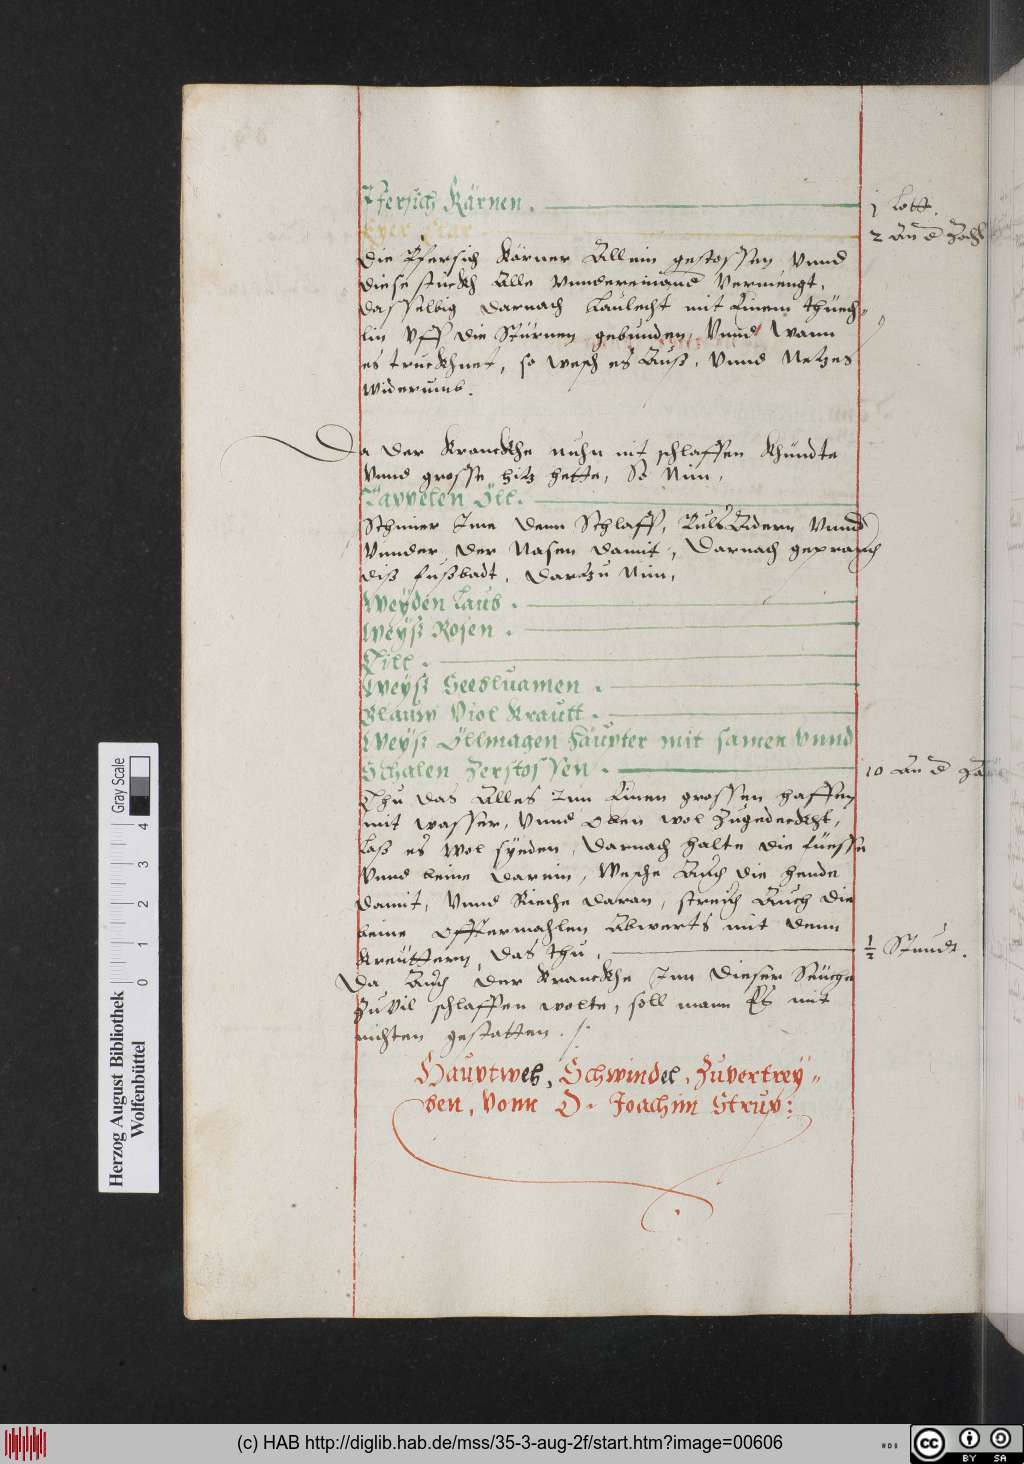 Pfersich Kärnen. 1 Lott.
Eyer Klar 2 An d Zahl
die Pfersich Körner Allein gestossen Vnnd
diese stuckh Alle vnndereinand Vermengt,
dasselbig darnach Laulecht mit Einem thüech-
lin Vff die Stürnen gebunden, Vnnd Wann
es truckhnet, so wesch es Auß, Vnnd Netzes
widerumb.
Da der Kranckhe nuhn nit schlaffen khündte
Vnnd grosse hitz hette, So Nim,
Pappelen Öll.
Schmier Ime denn Schlaff, PulsAdern Vnnd
Vnnder der Nasen damit, Darnach geprauch
diß fußbadt, dartzu Nim,
Weyden Laub.
Weyß Rosen.
Dill.
Weyß Seebluamen.
Blauw Viol Krautt.
Weyß Öllmagen Häupter mit samen Vnnd
Schalen Zerstossen. 10 An d Za
Thu das Alles Inn Einen grossen haffen
mit wasser, Vnnd Oben wol Zugedeckht,
Laß es wol syeden, Darnach halte die füesse
Vnnd beine darein, Wasche Auch die hende
damit, Vnnd Rieche daran, streich Auch die
beine offtermahlen Abwerts mit denn
Kreüttern, das thu, ½ Stundt.
Da Auch der Kranckhe Inn dieser Seuche
Zuvil schlaffen wolte, soll mann Es mit
nichten gestatten.
Hauptweh, Schwindel, Zuvertrey-
ben, Vonn D. Joachim Strup:
Herzog August Bibliothek
Wolfenbüttel
0 1 2 3 4
Gray Scale
(c) HAB http://diglib.hab.de/mss/35-3-aug-2f/start.htm?image=00606
cc BY SA